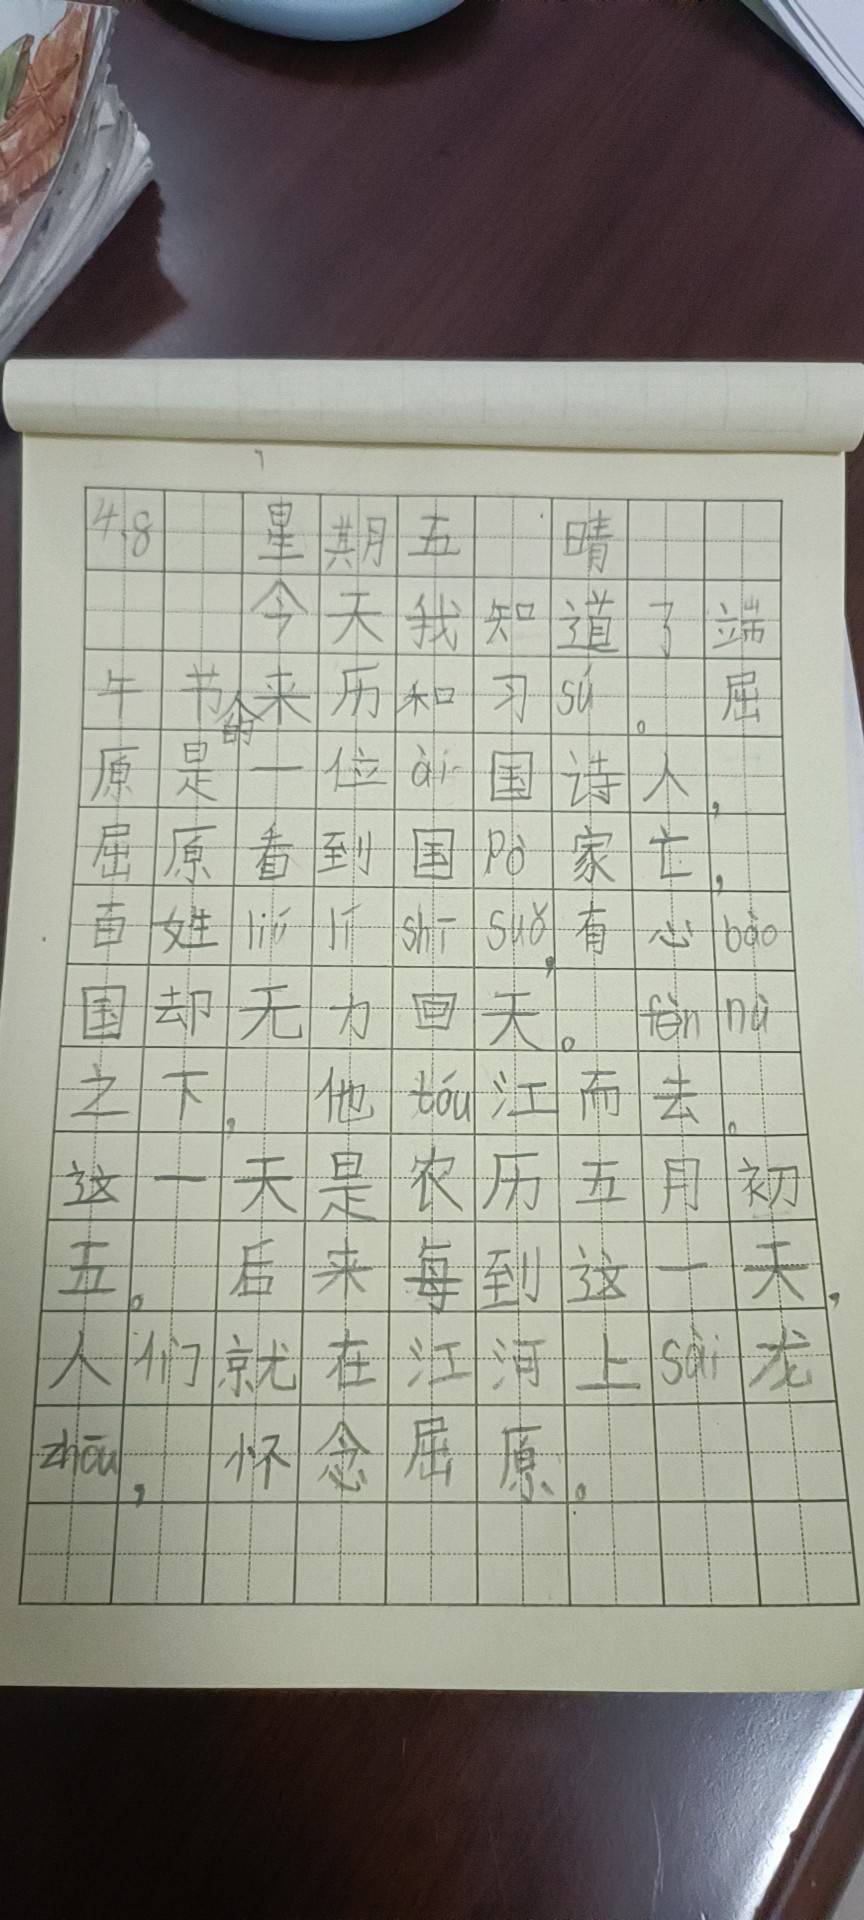 4.8 星期五 晴
今天我知道了端
午节的来历和习sú。屈
原是一位ài国诗人，
屈原看到国pò家亡，
百姓liú lí shī suǒ，有心bào
国却无力回天。fèn nù
之下，他tóu江而去。
这一天是农历五月初
五。后来每到这一天，
人们就在江河上sài龙
zhōu，怀念屈原。